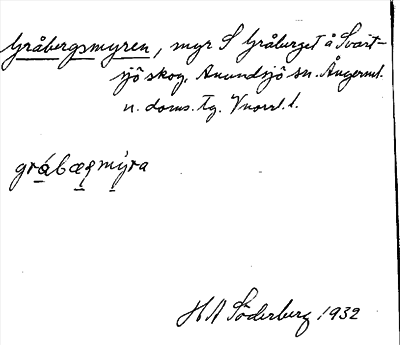 Gråbergsmyren, myr S Gråberget å Svart-
sjö skog, Anundsjö sn. Ångerml.
n. doms. tg. Vnorrl. l.
gråbæṛmýra
H A Söderberg 1932